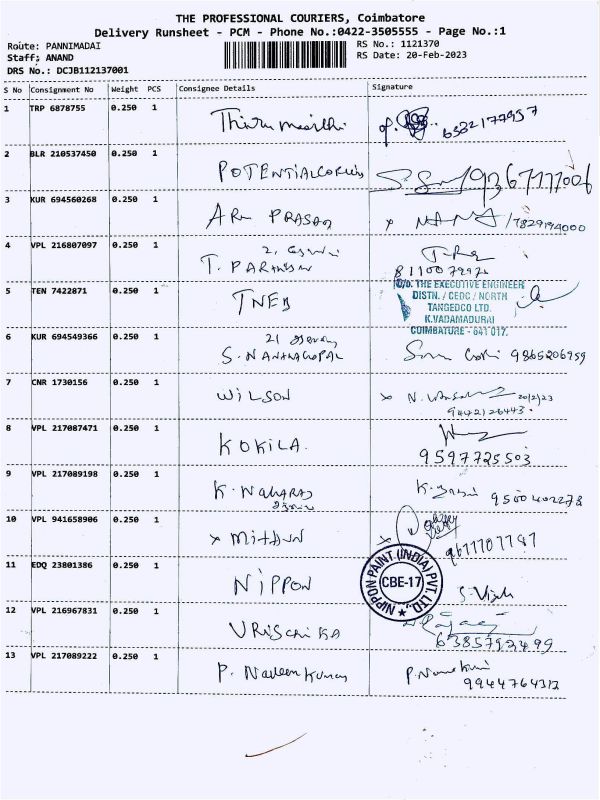 THE PROFESSIONAL COURIERS, Coimbatore
Delivery Runsheet - PCM - Phone No.:0422-3505555 - Page No.:1
Route: PANNIMADAI
RS No.: 1121370
Staff; ANAND
RS Date: 20-Feb-2023
DRS No.: DCJB112137001
S No Consignment No Weight PCS Consignee Details Signature
1 TRP 6878755 0.250 1
2 BLR 210537450 0.250 1
3 KUR 694560268 0.250 1 PRASAD
x NANA /7829194000
4 VPL 216807097 0.250 1
5 TEN 7422871 0.250 1 TNEB
O/o. THE EXECUTIVE ENGINEER
DISTN. / CEDC / NORTH
TANGEDCO LTD.
K.VADAMADURAI
COIMBATURE - 641 017.
6 KUR 694549366 0.250 1 S. NANTHAGOPAL 9865206959
7 CNR 1730156 0.250 1 WILSON
20/2/23
9442126443.
8 VPL 217087471 0.250 1 KOKILA.
9597725503
9 VPL 217089198 0.250 1
9500402278
10 VPL 941658906 0.250 1 x MITHUN
9677707787
11 EDQ 23801386 0.250 1 NIPPON
NIPPON PAINT (INDIA) PVT. LTD.,
CBE-17
12 VPL 216967831 0.250 1
13 VPL 217089222 0.250 1 P. Naveen Kumar
9944764312